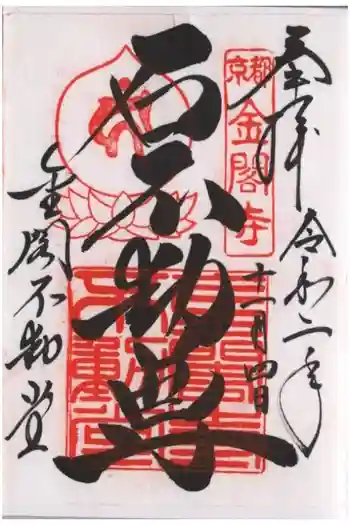 奉拝
令和二年
十一月四日
京都
金閣寺
石不動尊
金閣不動堂